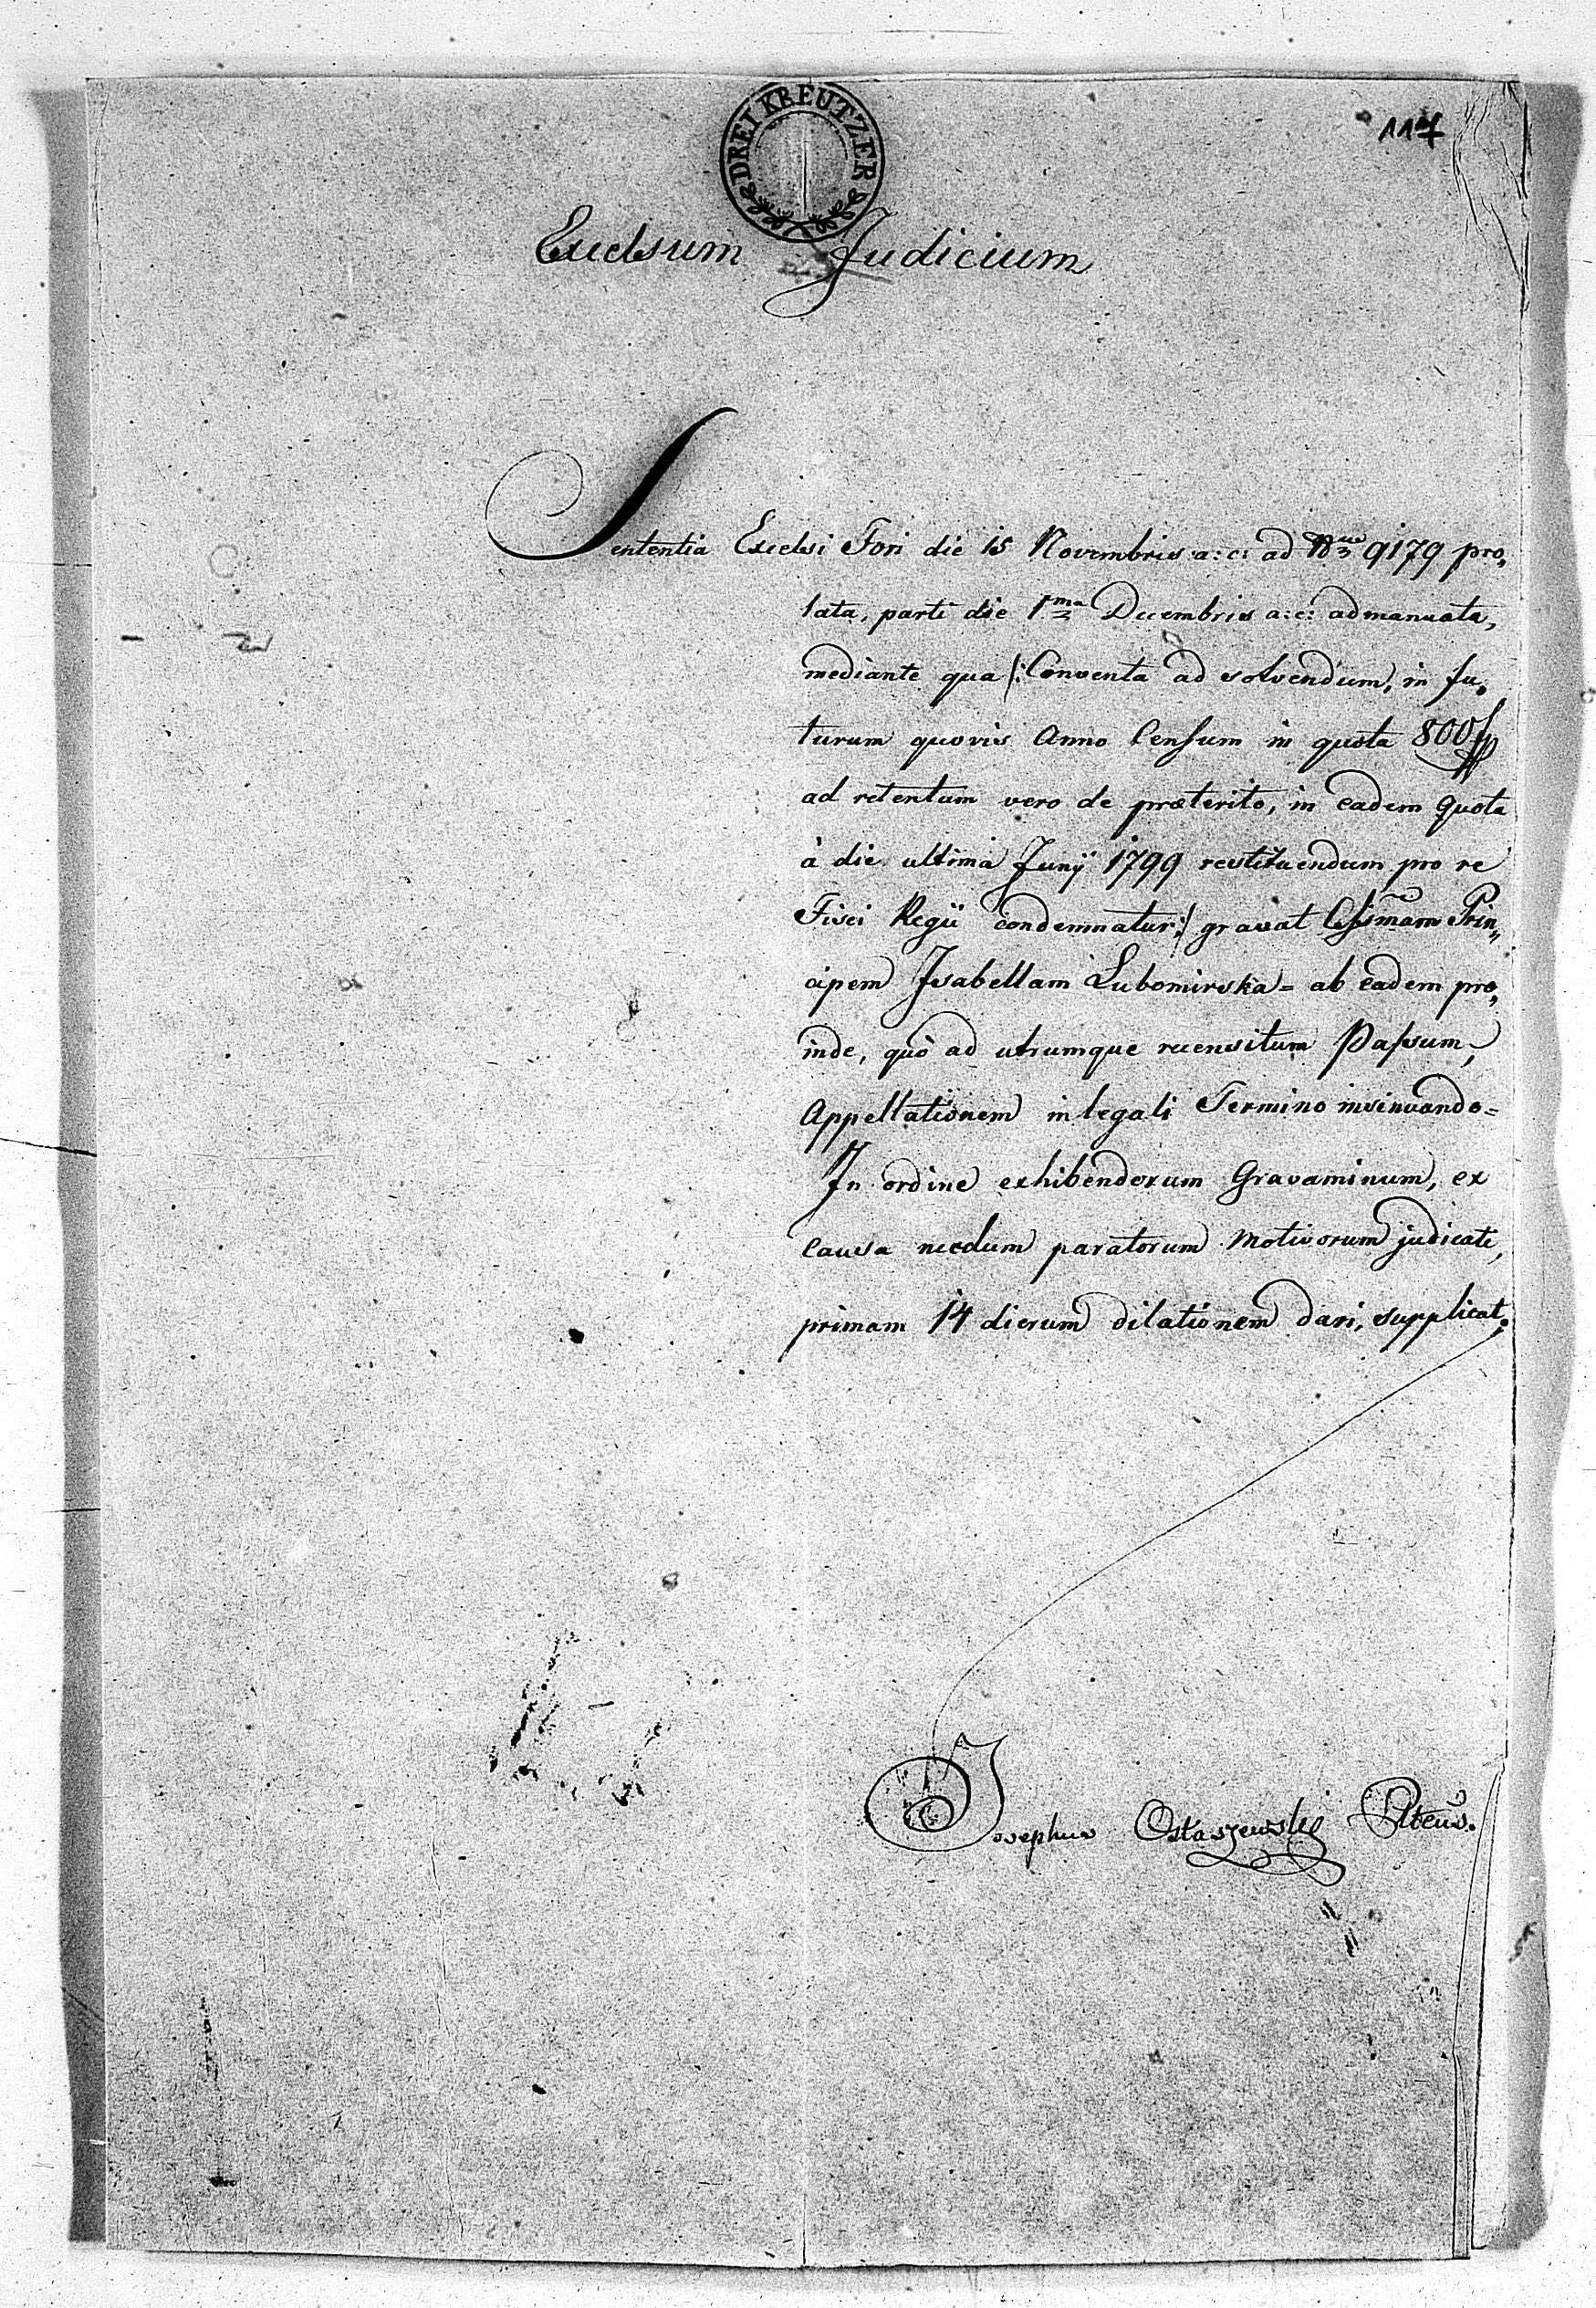 DREI KREUTZER
117
Excelsum Judicium
Sententia Excelsi Fori die 15 Novembris a: c: ad Nrum 9179 pro„
lata, parti die 1ma Decembris a: c: admanuata,
mediante qua /: Conventa ad solvendum, in fu„
turum quovis Anno Censum in quota 800 f
ad retentum vero de præterito, in eadem Quota
à die ultima Junij 1799 restituendum pro re
Fisci Regii condemnatur :/ gravat Celsmam Prin„
cipem Isabellam Lubomirska = ab eadem pro„
inde, quò ad utrumque recensitum Passum,
Appellationem in legali Termino insinuando =
In ordine exhibendorum Gravaminum, ex
Causa necdum paratorum Motivorum judicati,
primam 14 dierum dilationem dari, supplicat.
Josephus Ostaszewski